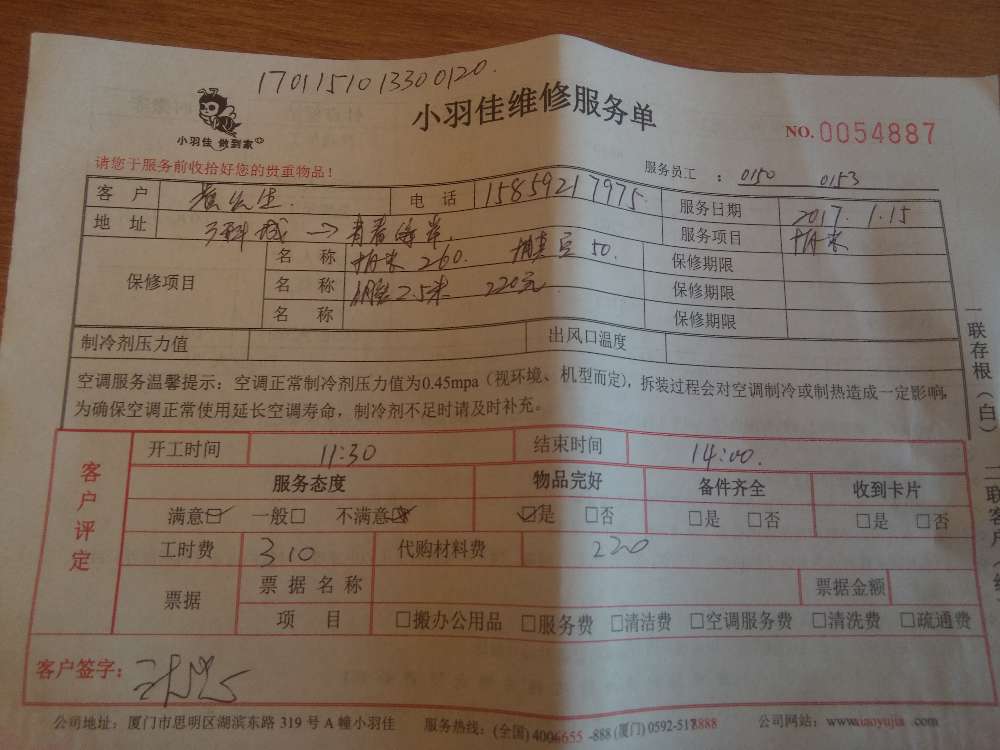 1701151013300120
小羽佳 做到家
小羽佳维修服务单
NO. 0054887
请您于服务前收拾好您的贵重物品！
服务员工 ： 0150 0153
客 户 电 话 15859217975 服务日期 2017.1.15
地 址 服务项目
保修项目 名 称 260. 50. 保修期限
名 称 2.5米 220元 保修期限
名 称 保修期限
制冷剂压力值 出风口温度
空调服务温馨提示：空调正常制冷剂压力值为0.45mpa（视环境、机型而定），拆装过程会对空调制冷或制热造成一定影响，
为确保空调正常使用延长空调寿命，制冷剂不足时请及时补充。
一联存根（白）
二联客户
客户评定
开工时间 11:30 结束时间 14:00.
服务态度 物品完好 备件齐全 收到卡片
满意☑ 一般□ 不满意 ☑是 □否 □是 □否 □是 □否
工时费 310 代购材料费 220
票据 票据名称 票据金额
项 目 □搬办公用品 □服务费 □清洁费 □空调服务费 □清洗费 □疏通费
客户签字：
公司地址：厦门市思明区湖滨东路 319 号 A 幢小羽佳 服务热线：(全国) 4006655 -888 (厦门) 0592-5178888 公司网站：www.xiaoyujia .com